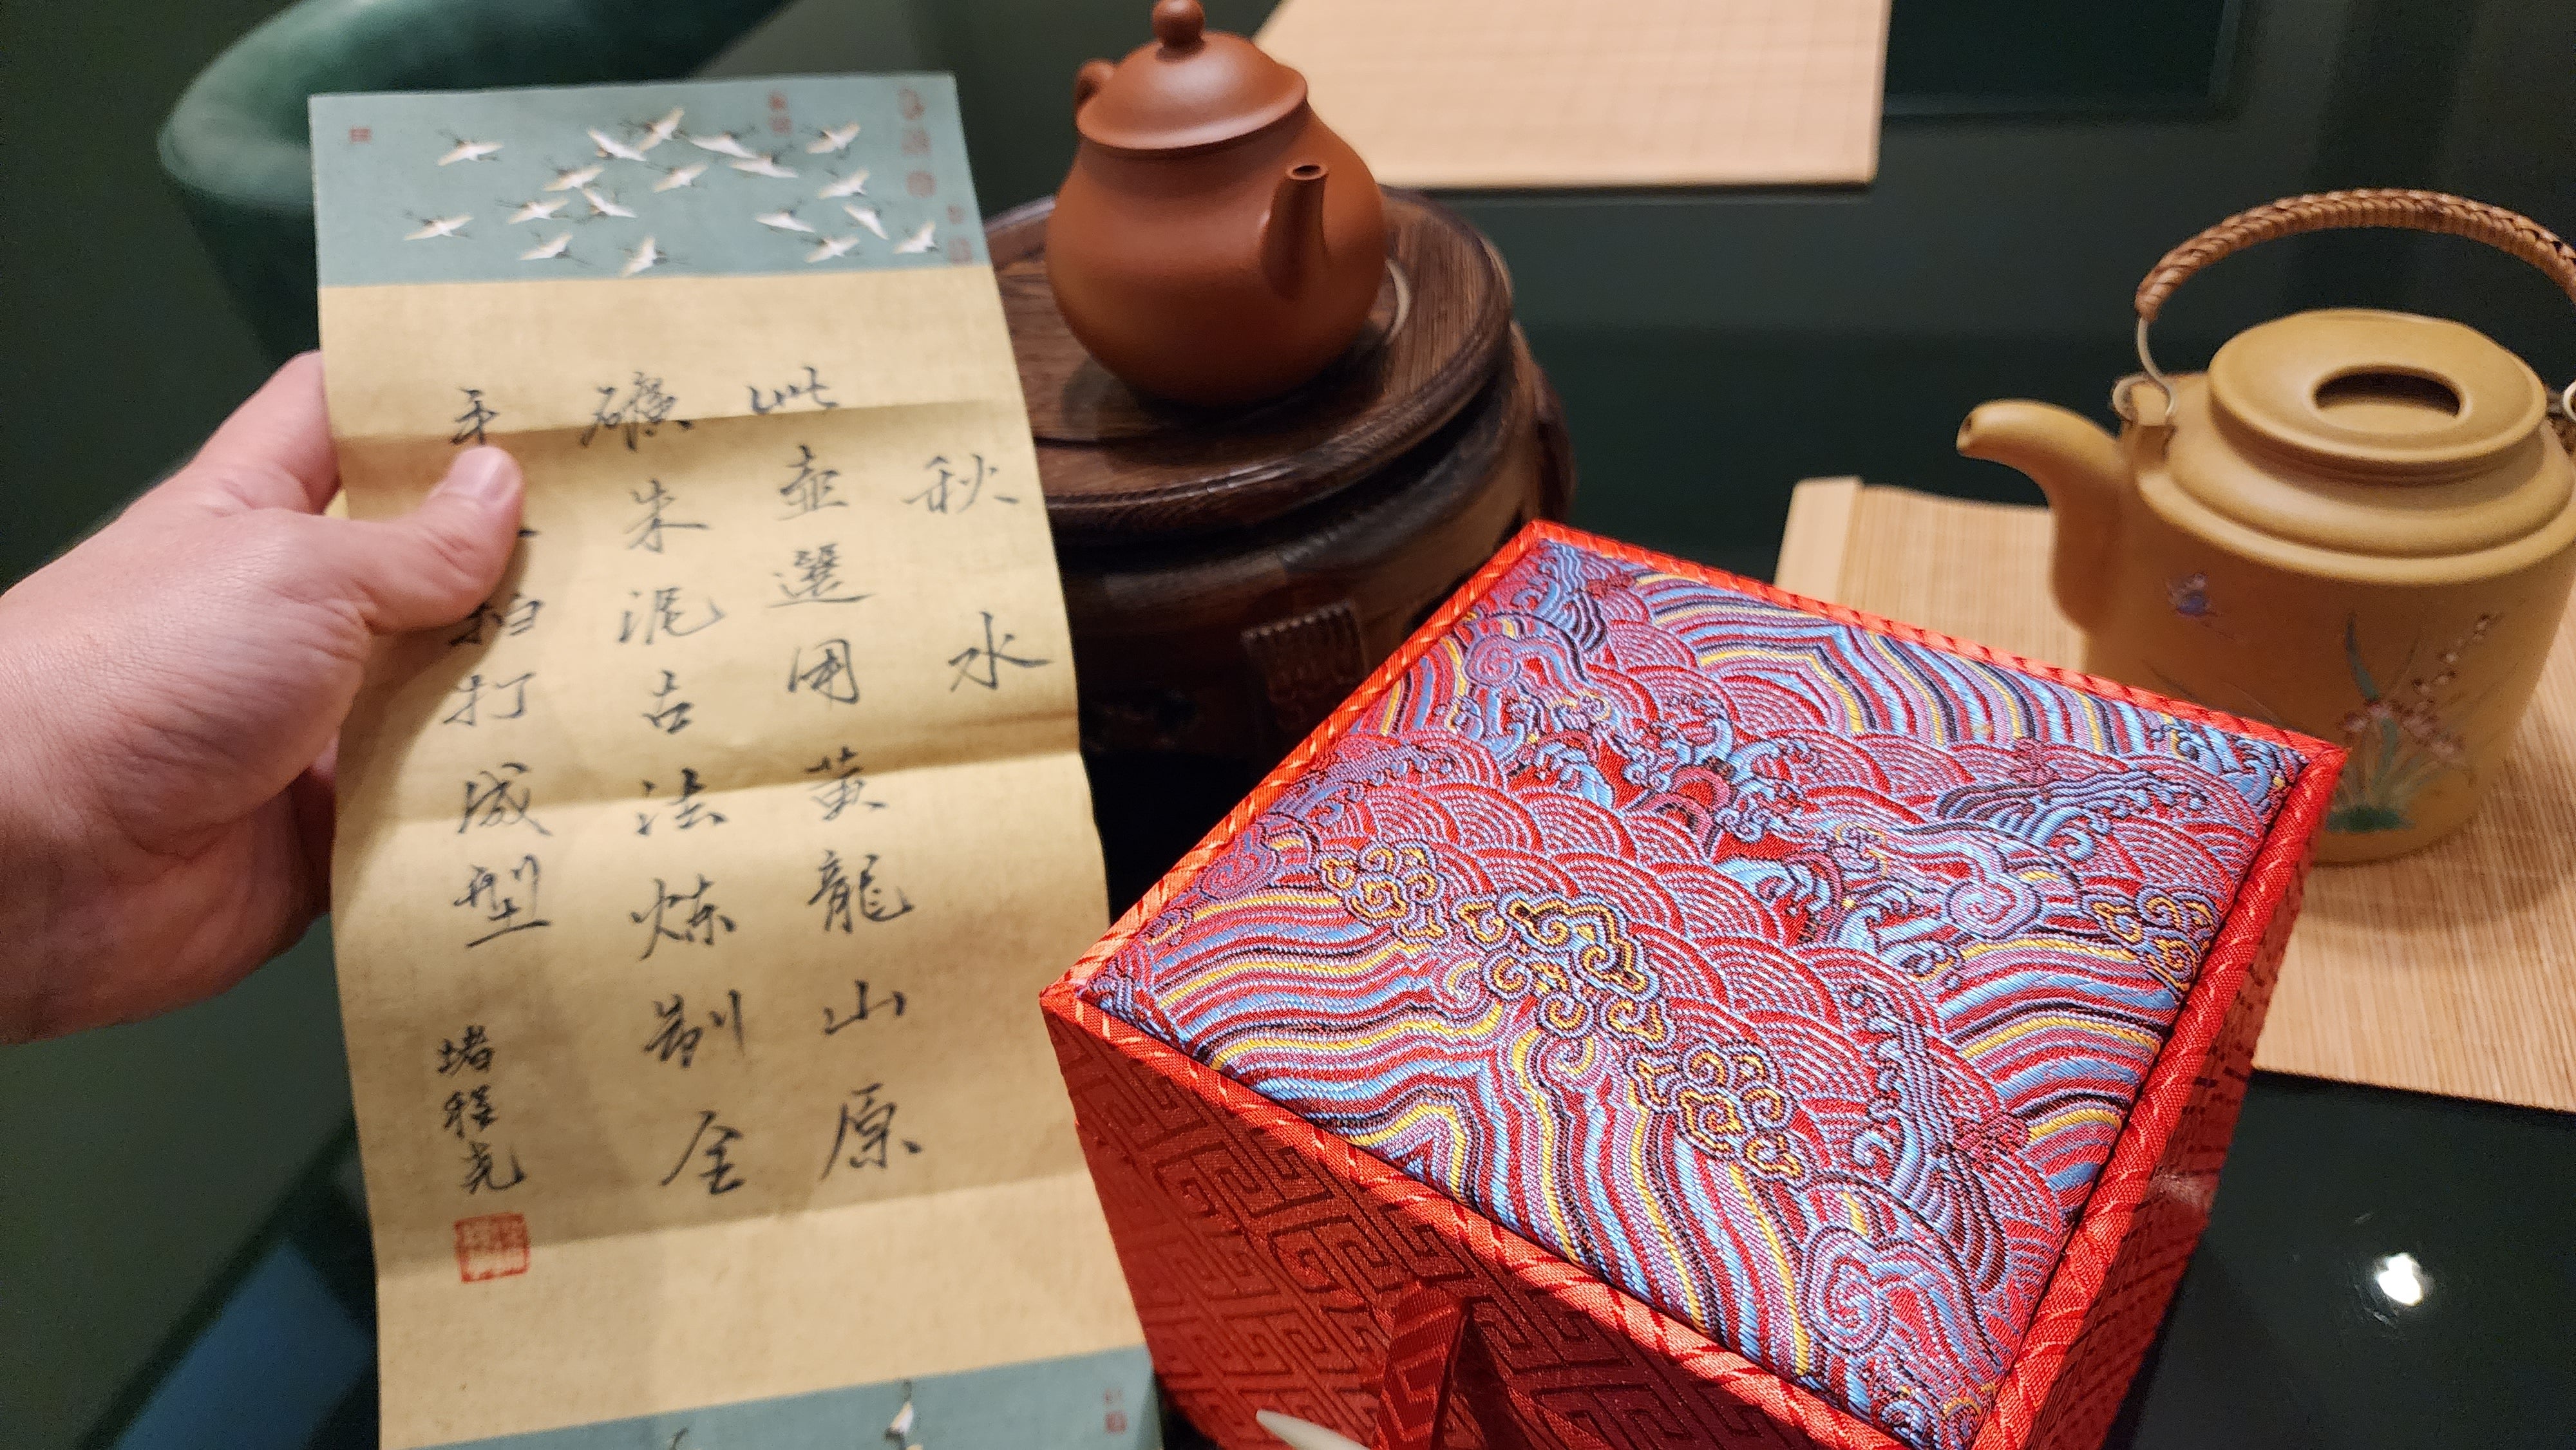 秋水
此壺選用黃龍山原
礦朱泥古法炼制全
手拍打成型
堵程尧